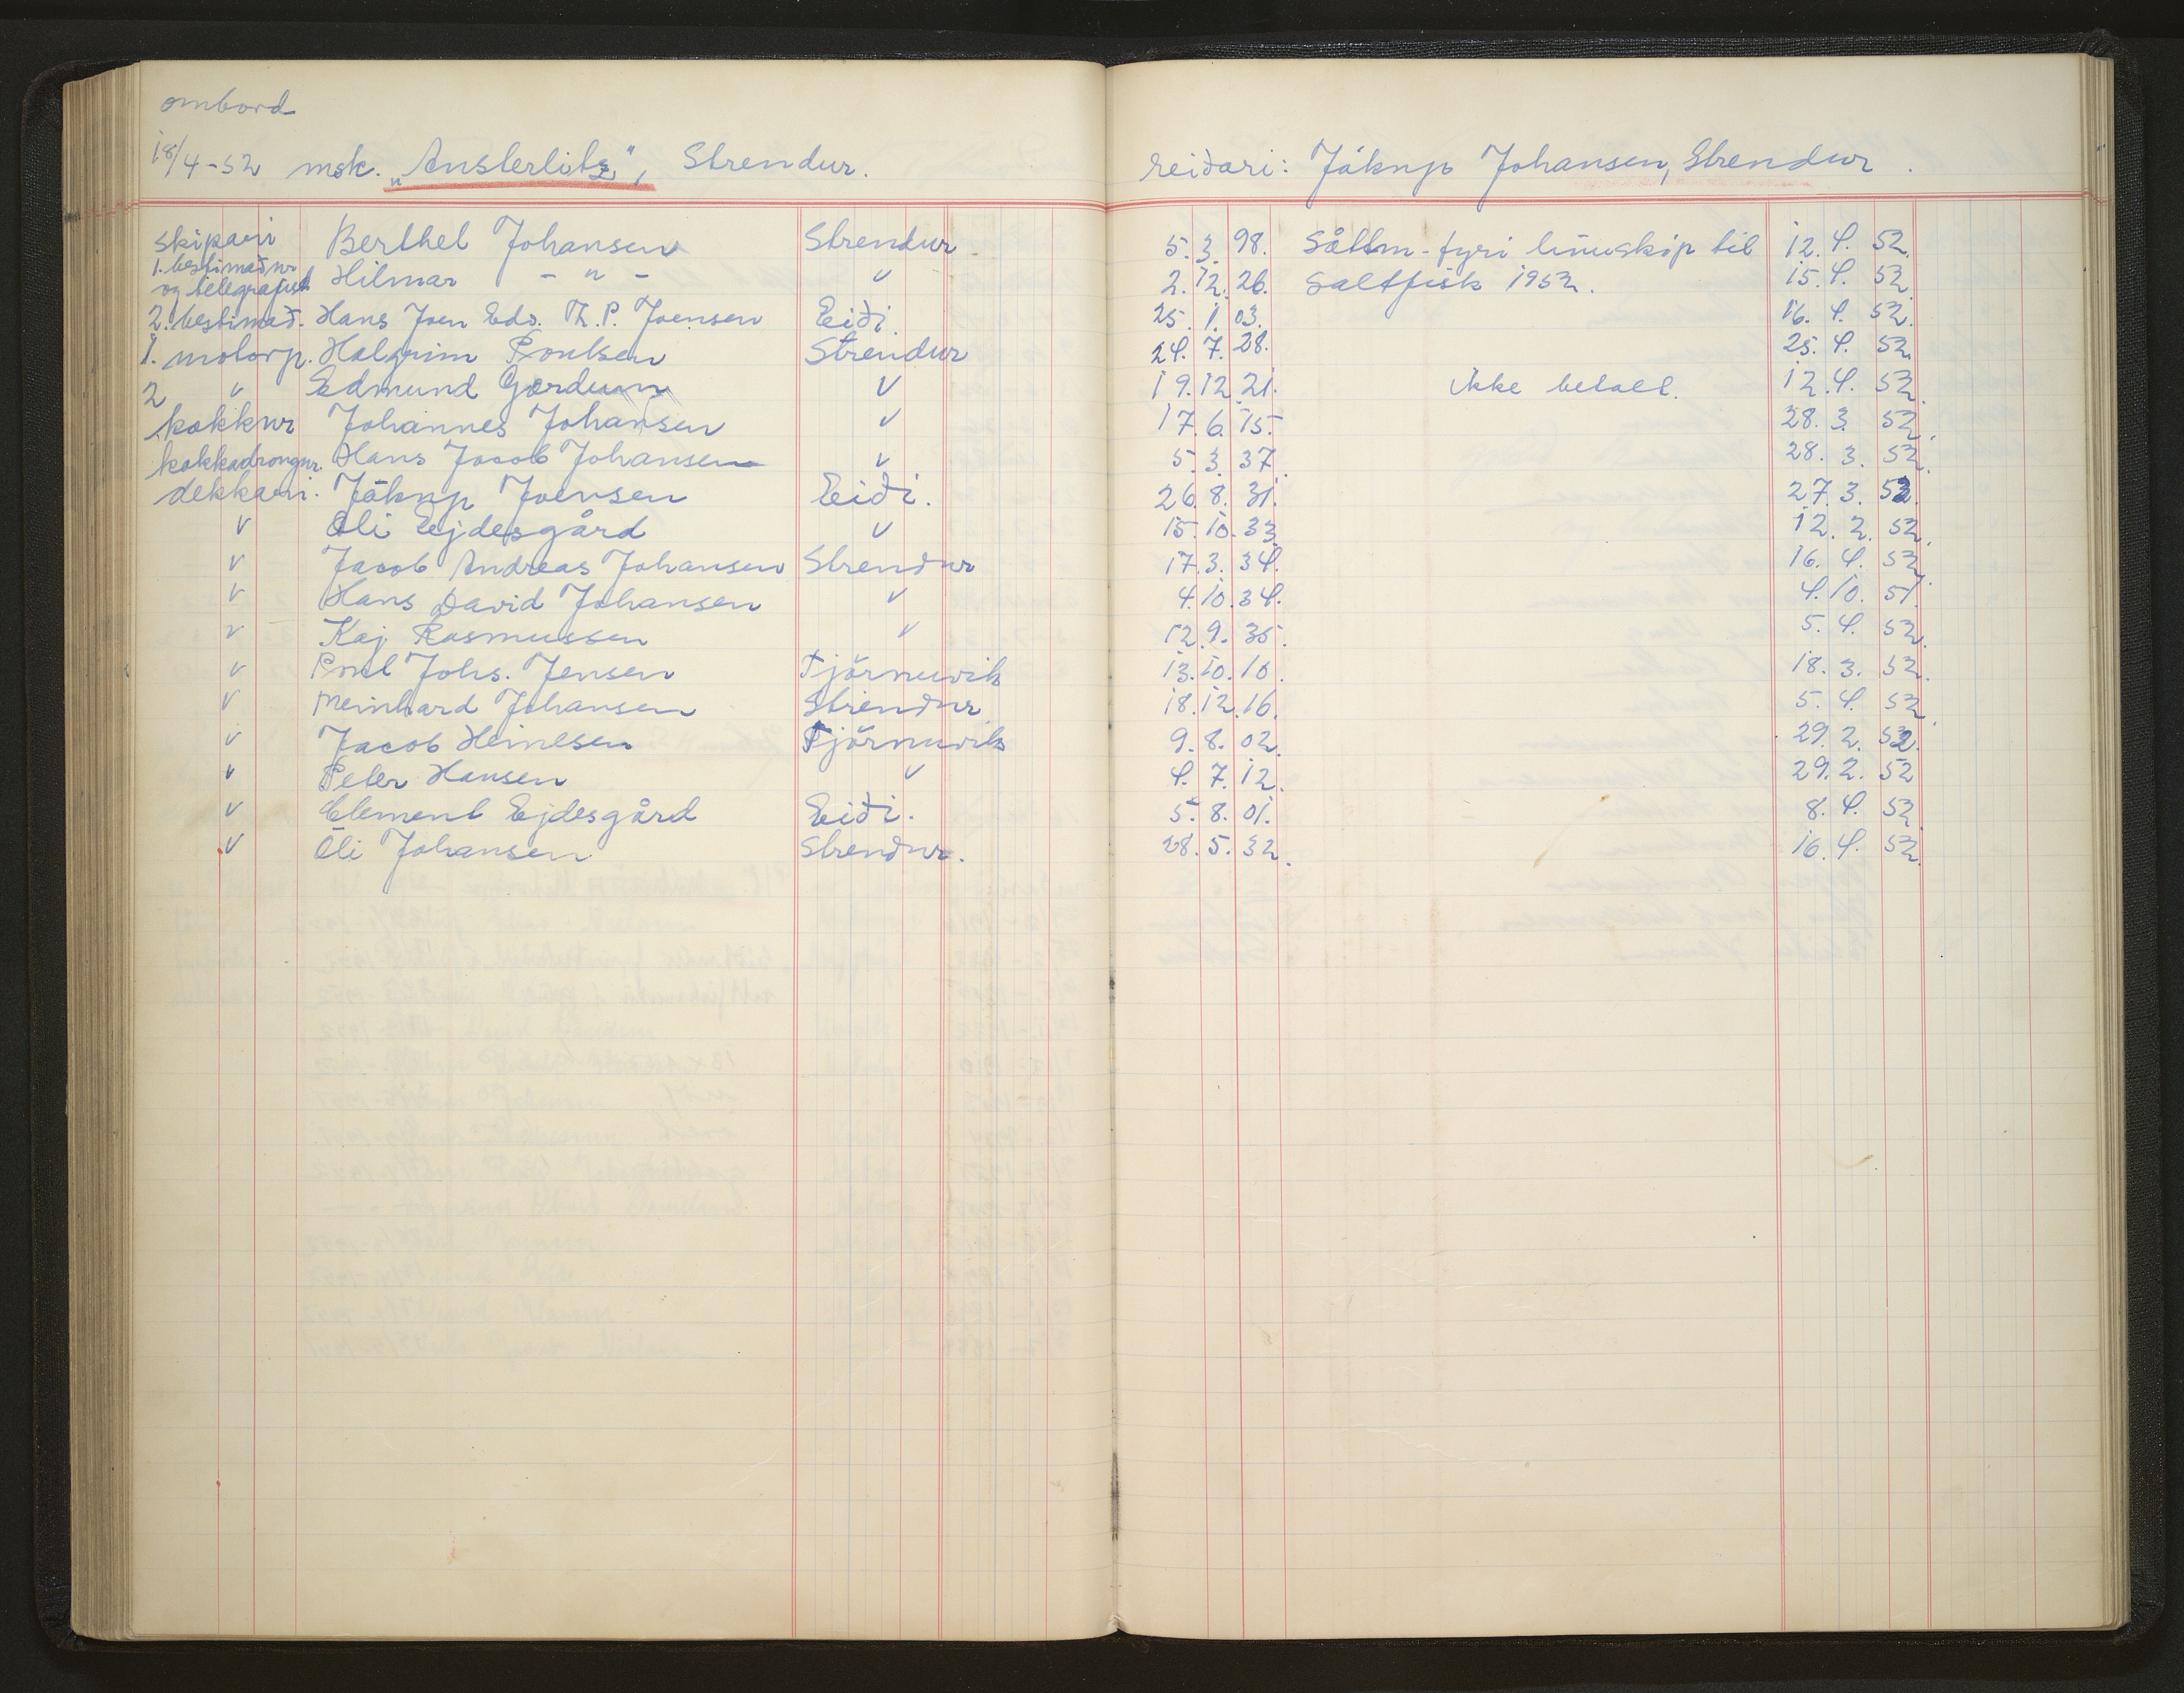 ombord
18/4-52 msk. „Austerlitz", Strendur. reiðari: Jákup Johansen, Strendur.
skipari Berthel Johansen Strendur 5. 3. 98. Sáttm-fyri línuskip til 12. 4. 52.
1. bestimaður og telegrafist Hilmar - " - v 2. 12. 26. Saltfisk 1952. 15. 4. 52.
2. bestimað. Hans Joen Eds. Th. P. Joensen Eiði. 25. 1. 03. 16. 4. 52.
1. motorp. Halgrim Poulsen Strendur 24. 7. 28. 25. 4. 52.
2 v Edmund Gærdum v 19. 12. 21. ikke betalt. 12. 4. 52.
kokkur Johannes Johansen v 17. 6. 15. 28. 3. 52.
kokkadrongur. Hans Jacob Johansen v 5. 3. 37. 28. 3. 52.
dekkari. Jákup Joensen Eiði. 26. 8. 31. 27. 3. 52.
v Óli Ejdesgård v 15. 10. 33. 12. 2. 52.
v Jacob Andreas Johansen Strendur 17. 3. 34. 16. 4. 52.
v Hans David Johansen v 4. 10. 34. 4. 10. 51.
v Kaj Rasmussen v 12. 9. 35. 5. 4. 52.
v Poul Johs. Jensen Tjörnuvik 13. 10. 10. 18. 3. 52.
v Meinhard Johansen Strendur 18. 12. 16. 5. 4. 52.
v Jacob Heinesen Tjörnuvik 9. 8. 02. 29. 2. 52.
v Peter Hansen v 4. 7. 12. 29. 2. 52
v Clement Ejdesgård Eiði. 5. 8. 01. 8. 4. 52.
v Óli Johansen Strendur. 28. 5. 32. 16. 4. 52.